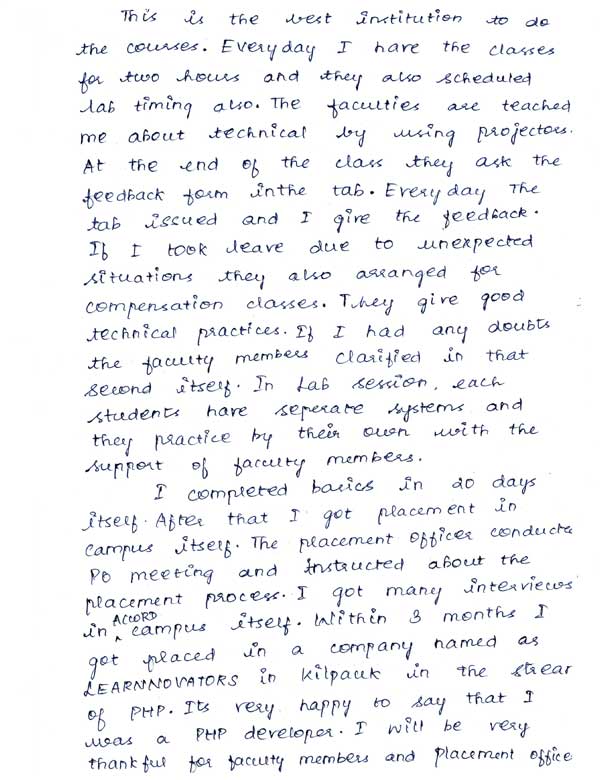 This is the best institution to do
the courses. Everyday I have the classes
for two hours and they also scheduled
lab timing also. The faculties are teached
me about technical by using projectors.
At the end of the class they ask the
feedback form inthe tab. Everyday The
tab issued and I give the feedback.
If I took leave due to unexpected
situations they also arranged for
compensation classes. They give good
technical practices. If I had any doubts
the faculty members clarified in that
second itself. In Lab session, each
students have seperate systems and
they practice by their own with the
support of faculty members.
I completed basics in 20 days
itself. After that I got placement in
campus itself. The placement officer conducts
PO meeting and Instructed about the
placement process. I got many interviews
in ACCORD campus itself. Within 3 months I
got placed in a company named as
LEARNNOVATORS in Kilpauk in the strear
of PHP. Its very happy to say that I
was a PHP developer. I will be very
thankful for faculty members and Placement office